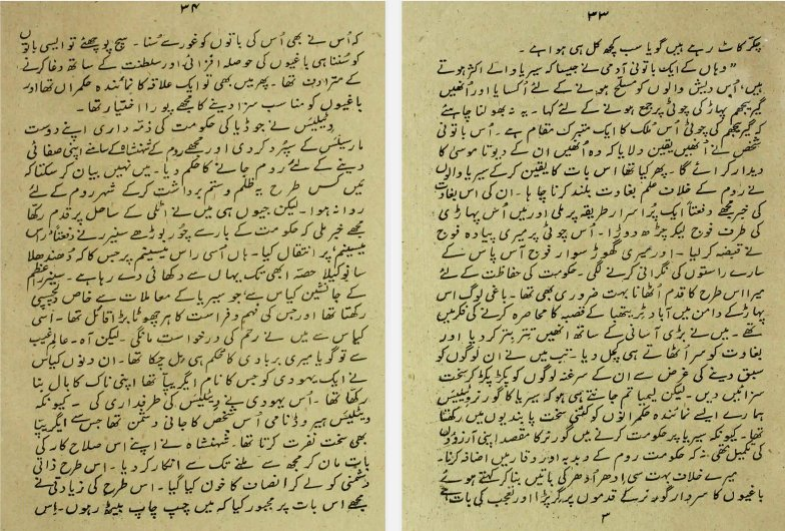 ۳۳
چکر کاٹ رہے ہیں گویا سب کچھ کل ہی ہوا ہے۔
"وہاں کے ایک باتونی آدمی نے جیسا کہ سیریا والے اکثر ہوتے
ہیں، اُس دیش والوں کو مسلح ہونے کے لئے اُکسایا اور اُنھیں
گیریجیم پہاڑ کی چوٹی پر جمع ہونے کے لئے کہا۔ یہ نہ بھولنا چاہئے
کہ گیریجیم کی چوٹی اُس ملک کا ایک متبرک مقام ہے۔ اُس باتونی
شخص نے اُنھیں یقین دلایا کہ وہ اُنھیں ان کے دیوتا موسیٰ کا
دیدار کرائے گا۔ پھر کیا تھا اس بات کا یقین کرکے سیریا والوں
نے روم کے خلاف علم بغاوت بلند کرنا چاہا۔ ان کی اس بغاوت
کی خبر مجھے دفعتاً ایک پُراسرار طریقہ پر ملی اور میں اُس پہاڑی
کی طرف فوج لیکر چڑھ دوڑا۔ اُس چوٹی پر میری پیادہ فوج
نے قبضہ کر لیا۔ اور میری گھوڑ سوار فوج آس پاس کے
سارے راستوں کی نگرانی کرنے لگی۔ حکومت کی حفاظت کے لئے
میرا اس طرح کا قدم اُٹھانا بہت ضروری بھی تھا۔ باغی لوگ اس
پہاڑ کے دامن میں آباد کے قصبہ کا محاصرہ کرنے کی فکر میں
تھے۔ میں نے بڑی آسانی کے ساتھ انھیں تتر بتر کر دیا اور
بغاوت کو سر اُٹھاتے ہی کچل دیا۔ تب میں نے ان لوگوں کو
سبق دینے کی غرض سے ان کے سرغنہ لوگوں کو پکڑ پکڑ کر سخت
سزائیں دیں۔ لیکن لیمیا تم جانتے ہی ہو کہ سیریا کا گورنر وٹیلیئس
ہمارے ایسے نمائندہ حکمرانوں کو کتنی سخت پابندیوں میں رکھتا
تھا۔ کیونکہ سیریا پر حکومت کرنے میں گورنر کا مقصد اپنی آرزوؤں
کی تکمیل تھی نہ کہ حکومت روم کے دبدبہ اور وقار میں اضافہ کرنا۔
میرے خلاف بہت سی ادھر اُدھر کی باتیں بنا کر کہتے ہوئے
باغیوں کا سردار گورنر کے قدموں پر گر پڑا اور تعجب کی بات ہے
۳
۳۴
کہ اُس نے بھی اُس کی باتوں کو غور سے سُنا۔ سچ پوچھئے تو ایسی باتوں
کو سُننا ہی باغیوں کی حوصلہ افزائی اور سلطنت کے ساتھ دغا کرنے
کے مترادف تھا۔ پھر میں بھی تو ایک علاقہ کا نمائندہ حکمراں تھا اور
باغیوں کو مناسب سزا دینے کا مجھے پورا اختیار تھا۔
وٹیلیئس نے جوڈیا کی حکومت کی ذمہ داری اپنے دوست
مارسیلئس کے سپرد کر دی اور مجھے روم کے شہنشاہ کے سامنے اپنی صفائی
دینے کے لئے روم جانے کا حکم دیا۔ میں نہیں بیان کر سکتا کہ
میں کس طرح یہ ظلم و ستم برداشت کرکے شہر روم کے لئے
روانہ ہوا۔ لیکن جیوں ہی میں نے اٹلی کے ساحل پر قدم رکھا
مجھے خبر ملی کہ حکومت کے بار سے چُور بوڑھے سیزر نے دفعتاً راس
میسینم پر انتقال کیا۔ ہاں اُسی راس میسینم پر جس کا کہ دُھندھلا
سا نوکیلا حصہ ابھی تک یہاں سے دکھائی دے رہا ہے۔ سیزر اعظم
کے جانشین کیاس سے جو سیریا کے معاملات سے خاص دلچسپی
رکھتا تھا اور جس کی فہم و فراست کا ہر چھوٹا بڑا قائل تھا۔ اُسی
کیاس سے میں نے رحم کی درخواست مانگی۔ لیکن آہ۔ عالم غیب
سے تو گویا میری بربادی کا حکم ہی مل چکا تھا۔ ان دنوں کیاس
نے ایک یہودی کو جس کا نام ایگریپا تھا اپنی ناک کا بال بنا
رکھا تھا۔ اُس یہودی نے وٹیلیئس کی طرفداری کی۔ کیونکہ
وٹیلیئس ہیروڈ نامی اُس شخص کا جانی دشمن تھا جس سے ایگریپا
بھی سخت نفرت کرتا تھا۔ شہنشاہ نے اپنے اس صلاح کار کی
بات مان کر مجھ سے ملنے تک سے انکار کر دیا۔ اس طرح ذاتی
دشمنی کو لے کر انصاف کا خون کیا گیا۔ اس طرح کی زیادتی نے
مجھے اس بات پر مجبور کیا کہ میں چپ چاپ بیٹھ رہوں۔ اِس